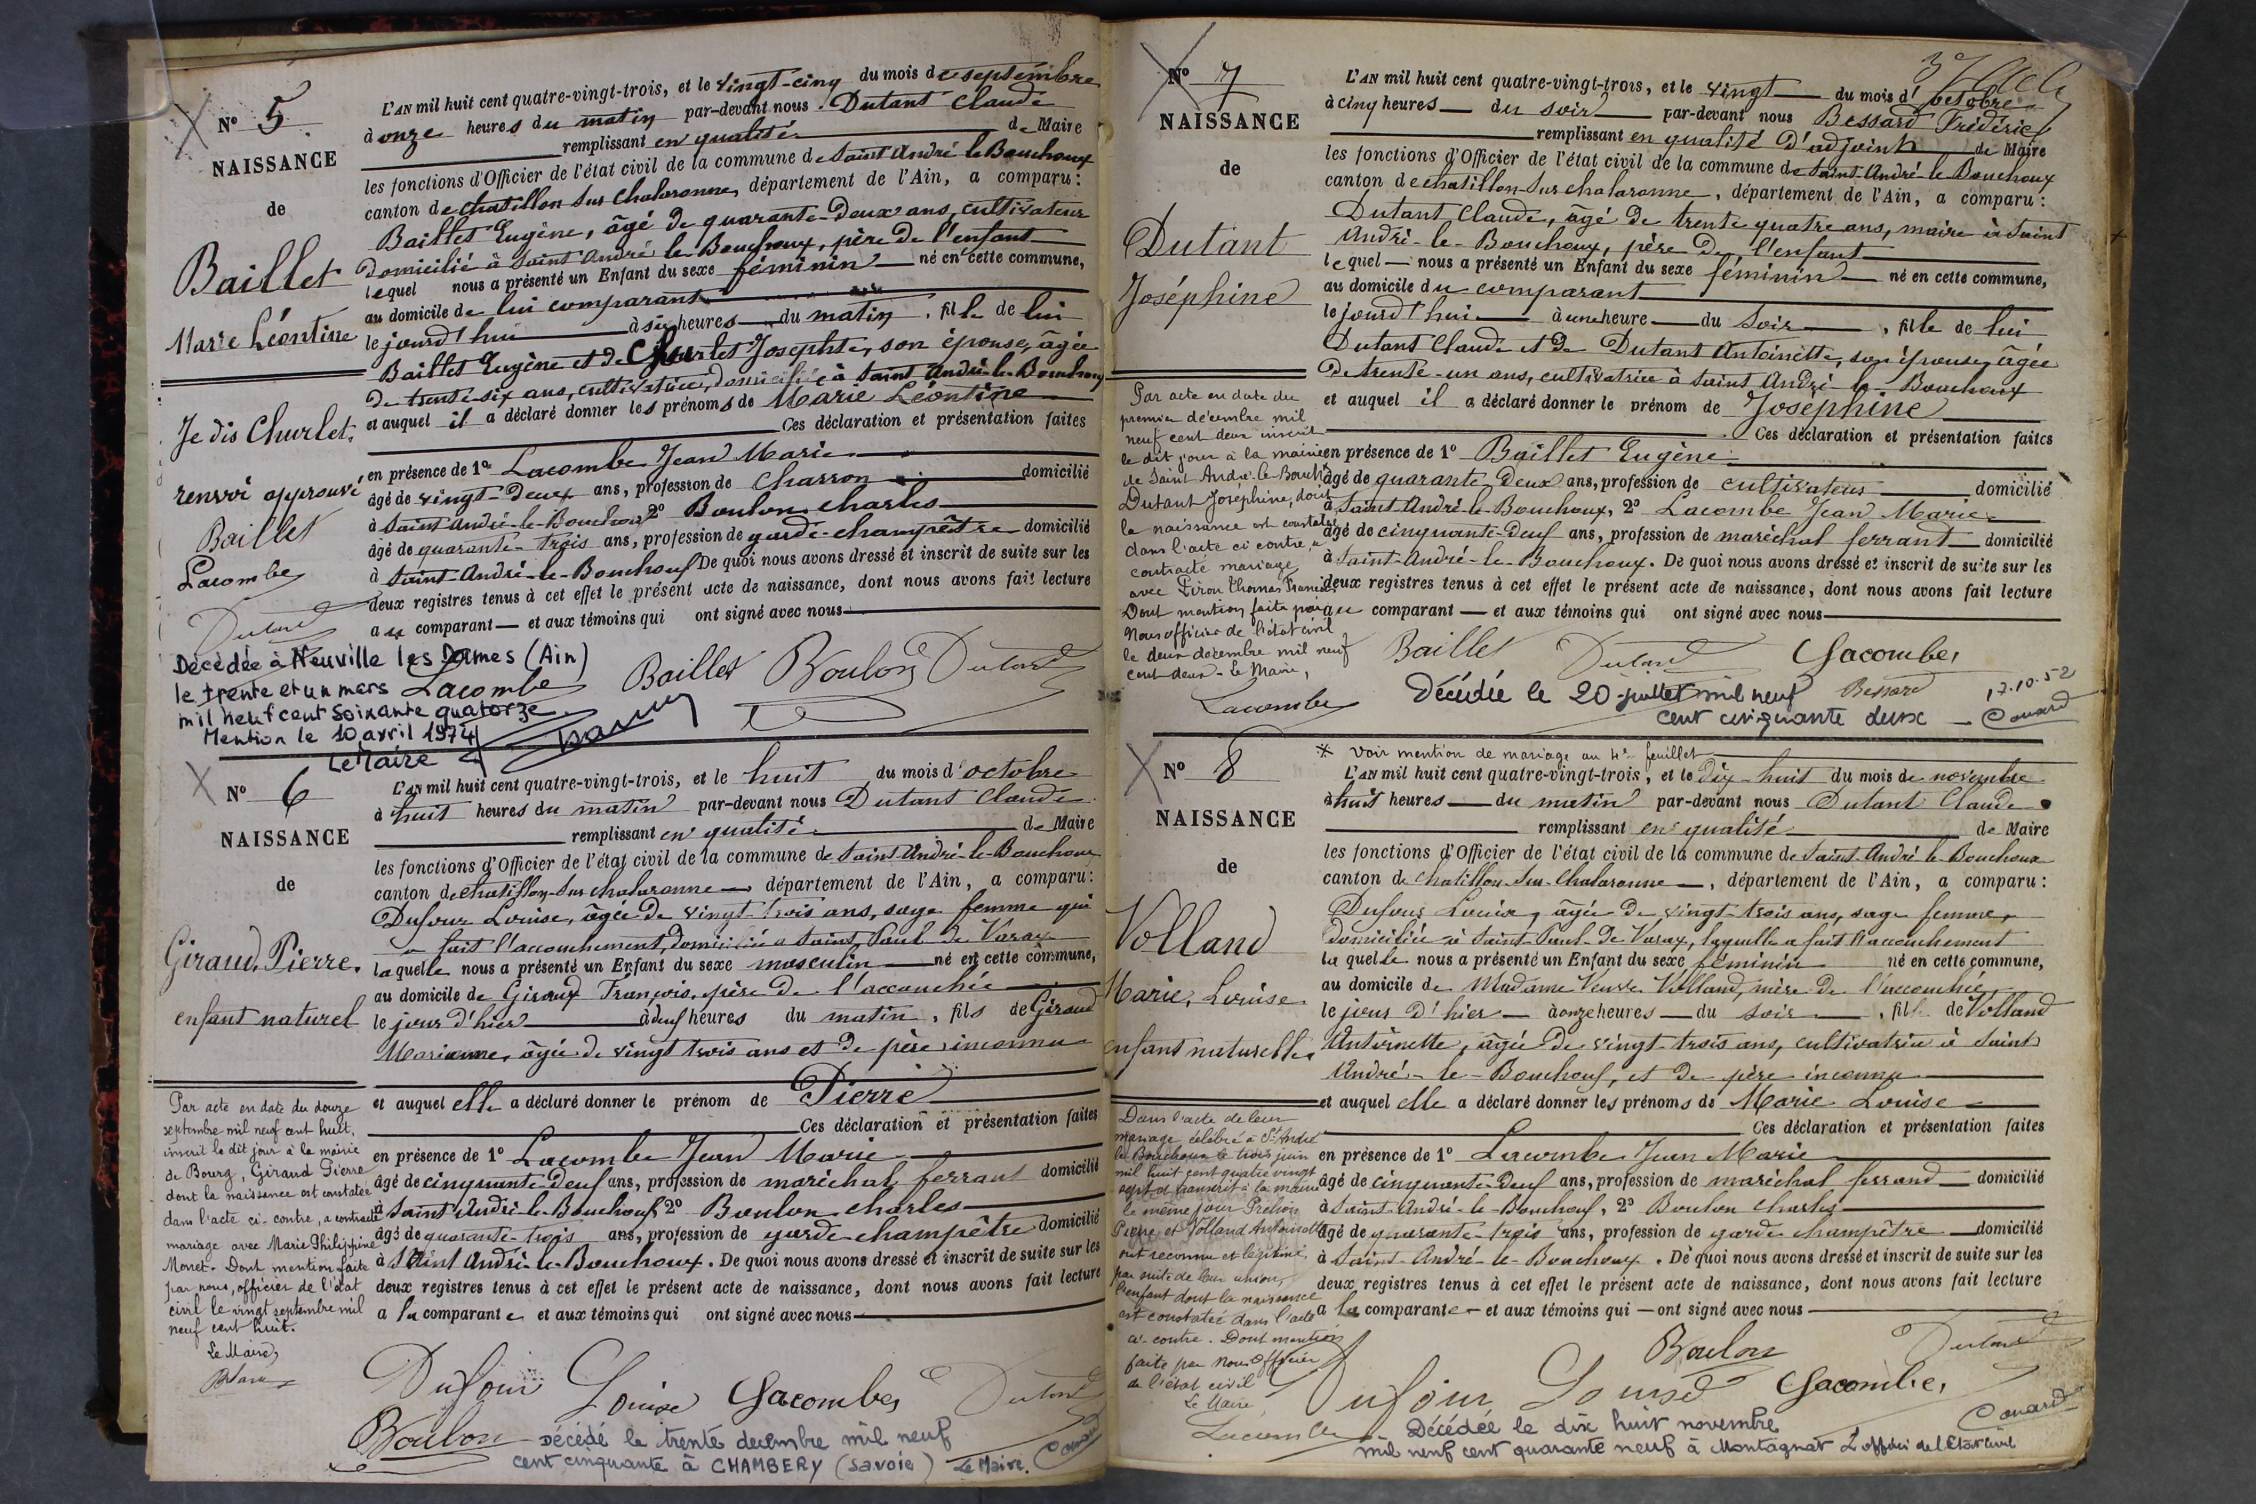 N° 5
NAISSANCE
de
Baillet
Marie Léontine
Je dis Churlet,
renvoi approuvé
Baillet
Lacombe
Dutant
Décédée à Neuville les Dames (Ain)
le trente et un mars
mil neuf cent soixante quatorze
Mention le 10 avril 1974
Le Maire
L'AN mil huit cent quatre-vingt-trois, et le vingt-cinq du mois de septembre
à onze heures du matin par-devant nous Dutant Claude
remplissant en qualité de Maire
les fonctions d'Officier de l'état civil de la commune de Saint André le Bouchoux
canton de Chatillon sur Chalaronne, département de l'Ain, a comparu:
Baillet Eugène, âgé de quarante-deux ans, cultivateur
domicilié à Saint André le Bouchoux, père de l'enfant
lequel nous a présenté un Enfant du sexe féminin né en cette commune,
au domicile de lui comparant
le jourd'hui à six heures du matin, fille de lui
Baillet Eugène et de Churlet Josephte, son épouse, âgée
de trente-six ans, cultivatrice, domiciliée à Saint André-le-Bouchoux
et auquel il a déclaré donner les prénoms de Marie Léontine
Ces déclaration et présentation faites
en présence de 1° Lacombe Jean Marie
âgé de vingt-deux ans, profession de charron domicilié
à Saint-André-le-Bouchoux 2° Boulon Charles
âgé de quarante-trois ans, profession de garde-champêtre domicilié
à Saint-André-le-Bouchoux De quoi nous avons dressé et inscrit de suite sur les
deux registres tenus à cet effet le présent acte de naissance, dont nous avons fait lecture
au comparant et aux témoins qui ont signé avec nous
Lacombe Baillet Boulon Dutant
N° 6
NAISSANCE
de
Giraud, Pierre.
enfant naturel
Par acte en date du douze
septembre mil neuf cent huit,
inscrit le dit jour à la mairie
de Bourg, Giraud Pierre
dont la naissance est constatée
dans l'acte ci-contre, a contracté
mariage avec Marie Philippine
Monet. Dont mention faite
par nous, officier de l'état
civil le vingt septembre mil
neuf cent huit.
Le Maire,
L'AN mil huit cent quatre-vingt-trois, et le huit du mois d'octobre
à huit heures du matin par-devant nous Dutant Claude
remplissant en qualité de Maire
les fonctions d'Officier de l'état civil de la commune de Saint-André-le-Bouchoux
canton de Chatillon-sur-Chalaronne, département de l'Ain, a comparu:
Dufour Louise, âgée de vingt-trois ans, sage femme qui
a fait l'accouchement, domiciliée à Saint Paul de Varax
laquelle nous a présenté un Enfant du sexe masculin né en cette commune,
au domicile de Giraud François, père de l'accouchée
le jour d'hier à neuf heures du matin, fils de Giraud
Marianne, âgée de vingt trois ans et de père inconnu
et auquel elle a déclaré donner le prénom de Pierre
Ces déclaration et présentation faites
en présence de 1° Lacombe Jean Marie
âgé de cinquante-deux ans, profession de maréchal ferrant domicilié
à Saint André-le-Bouchoux 2° Boulon Charles
âgé de quarante-trois ans, profession de garde-champêtre domicilié
à Saint André-le-Bouchoux. De quoi nous avons dressé et inscrit de suite sur les
deux registres tenus à cet effet le présent acte de naissance, dont nous avons fait lecture
a la comparante et aux témoins qui ont signé avec nous
Dufour Louise Lacombe Dutant
Boulon
Décédé le trente décembre mil neuf
cent cinquante à CHAMBERY (Savoie) Le Maire. Couard
N° 7
NAISSANCE
de
Dutant
Joséphine
Par acte en date du
premier décembre mil
neuf cent deux inscrit
le dit jour à la mairie
de Saint André-le-Bouchx
Dutant Joséphine, dont
la naissance est constatée
dans l'acte ci contre, a
contracté mariage
avec Piron Thomas Francis
Dont mention faite par
Nous officier de l'état civil
le deux décembre mil neuf
cent deux - Le Maire,
Lacombe
L'AN mil huit cent quatre-vingt-trois, et le vingt du mois d'octobre
à cinq heures du soir par-devant nous Bessard Frédéric
remplissant en qualité d'adjoint de Maire
les fonctions d'Officier de l'état civil de la commune de Saint-André-le-Bouchoux
canton de Chatillon-sur-Chalaronne, département de l'Ain, a comparu:
Dutant Claude, âgé de trente quatre ans, maire à Saint
André-le-Bouchoux, père de l'enfant
lequel nous a présenté un Enfant du sexe féminin né en cette commune,
au domicile du comparant
le jourd'hui à une heure du soir, fille de lui
Dutant Claude et de Dutant Antoinette, son épouse, âgée
de trente-un ans, cultivatrice à Saint André-le-Bouchoux
et auquel il a déclaré donner le prénom de Joséphine
Ces déclaration et présentation faites
en présence de 1° Baillet Eugène
âgé de quarante-deux ans, profession de cultivateur domicilié
à Saint-André-le-Bouchoux, 2° Lacombe Jean Marie
âgé de cinquante-deux ans, profession de maréchal ferrant domicilié
à Saint-André-le-Bouchoux. De quoi nous avons dressé et inscrit de suite sur les
deux registres tenus à cet effet le présent acte de naissance, dont nous avons fait lecture
au comparant et aux témoins qui ont signé avec nous
Baillet Dutant Lacombe
Bessard
Décédée le 20 juillet mil neuf
cent cinquante deux
17.10.52
Couard
* Voir mention de mariage au 4e feuillet
N° 8
NAISSANCE
de
Volland
Marie, Louise
enfant naturelle
Dans l'acte de leur
mariage célébré à St André
le Bouchoux le trois juin
mil huit cent quatre vingt
sept et transcrit à la mairie
le même jour
Pierre et Volland Antoinette
ont reconnu et légitimé
par suite de leur union,
l'enfant dont la naissance
est constatée dans l'acte
ci-contre. Dont mention
faite par Nous Officier
de l'état civil
Le Maire
Lacombe
L'AN mil huit cent quatre-vingt-trois, et le dix-huit du mois de novembre
à huit heures du matin par-devant nous Dutant Claude
remplissant en qualité de Maire
les fonctions d'Officier de l'état civil de la commune de Saint-André-le-Bouchoux
canton de Chatillon-sur-Chalaronne, département de l'Ain, a comparu:
Dufour Louise, âgée de vingt-trois ans, sage femme,
domiciliée à Saint-Paul-de-Varax, laquelle a fait l'accouchement
laquelle nous a présenté un Enfant du sexe féminin né en cette commune,
au domicile de Madame Veuve Volland, mère de l'accouchée
le jour d'hier à onze heures du soir, fille de Volland
Antoinette, âgée de vingt-trois ans, cultivatrice à Saint
André-le-Bouchoux, et de père inconnu
et auquel elle a déclaré donner les prénoms de Marie Louise
Ces déclaration et présentation faites
en présence de 1° Lacombe Jean Marie
âgé de cinquante-deux ans, profession de maréchal ferrand domicilié
à Saint-André-le-Bouchoux, 2° Boulon Charles
âgé de quarante-trois ans, profession de garde champêtre domicilié
à Saint-André-le-Bouchoux. De quoi nous avons dressé et inscrit de suite sur les
deux registres tenus à cet effet le présent acte de naissance, dont nous avons fait lecture
a la comparante et aux témoins qui ont signé avec nous
Boulon Dutant
Dufour Louise Lacombe
Décédée le dix huit novembre
mil neuf cent quarante neuf à Montagnat L'officier de l'Etat Civil
Couard